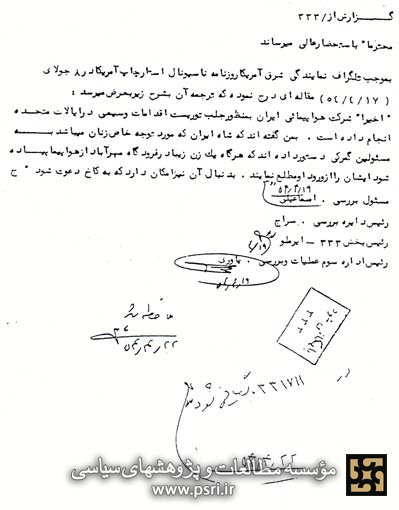 گـــزارش از/ ۳۳۳
محترما" باستحضارعالی میرساند
بموجب تلگراف نمایندگی شرق آمریکا روزنامه ناسیونال استارچاپ آمریکا در ۸ جولای
(۵۴/۴/۱۷) مقاله ای درج نموده که ترجمه آن بشرح زیربعرض میرسد :
" اخیرا" شرکت هواپیمائی ایران بمنظورجلب توریست اقدامات وسیعی درایالات متحده
انجام داده است . بمن گفته اند که شاه ایران که مورد توجه خاص زنان میباشد بــه
مسئولین گمرکی دستورداده اند که هرگاه یك زن زیبا درفرودگاه مهرآباد ازهواپیما پیـاده
شود ایشان را ازورود او مطلع نمایند . بدنبال آن نیزامکان دارد که به کاخ دعوت شود " ج
مسئول بررسی . اصفاعیلی ۵۴/۴/۱۹
رئیس دایره بررسی . سراج
رئیس بخش ۳۳۳ – ایرملو ۴/۱۹
رئیس اداره سوم عملیات وبررسی . یاوری
۵۴/۴/۱۹
۵۴/۴/۲۲
۳۳۳
در ۳۳۱۷۱۱
مؤسسه مطالعات و پژوهشهای سیاسی
www.psri.ir